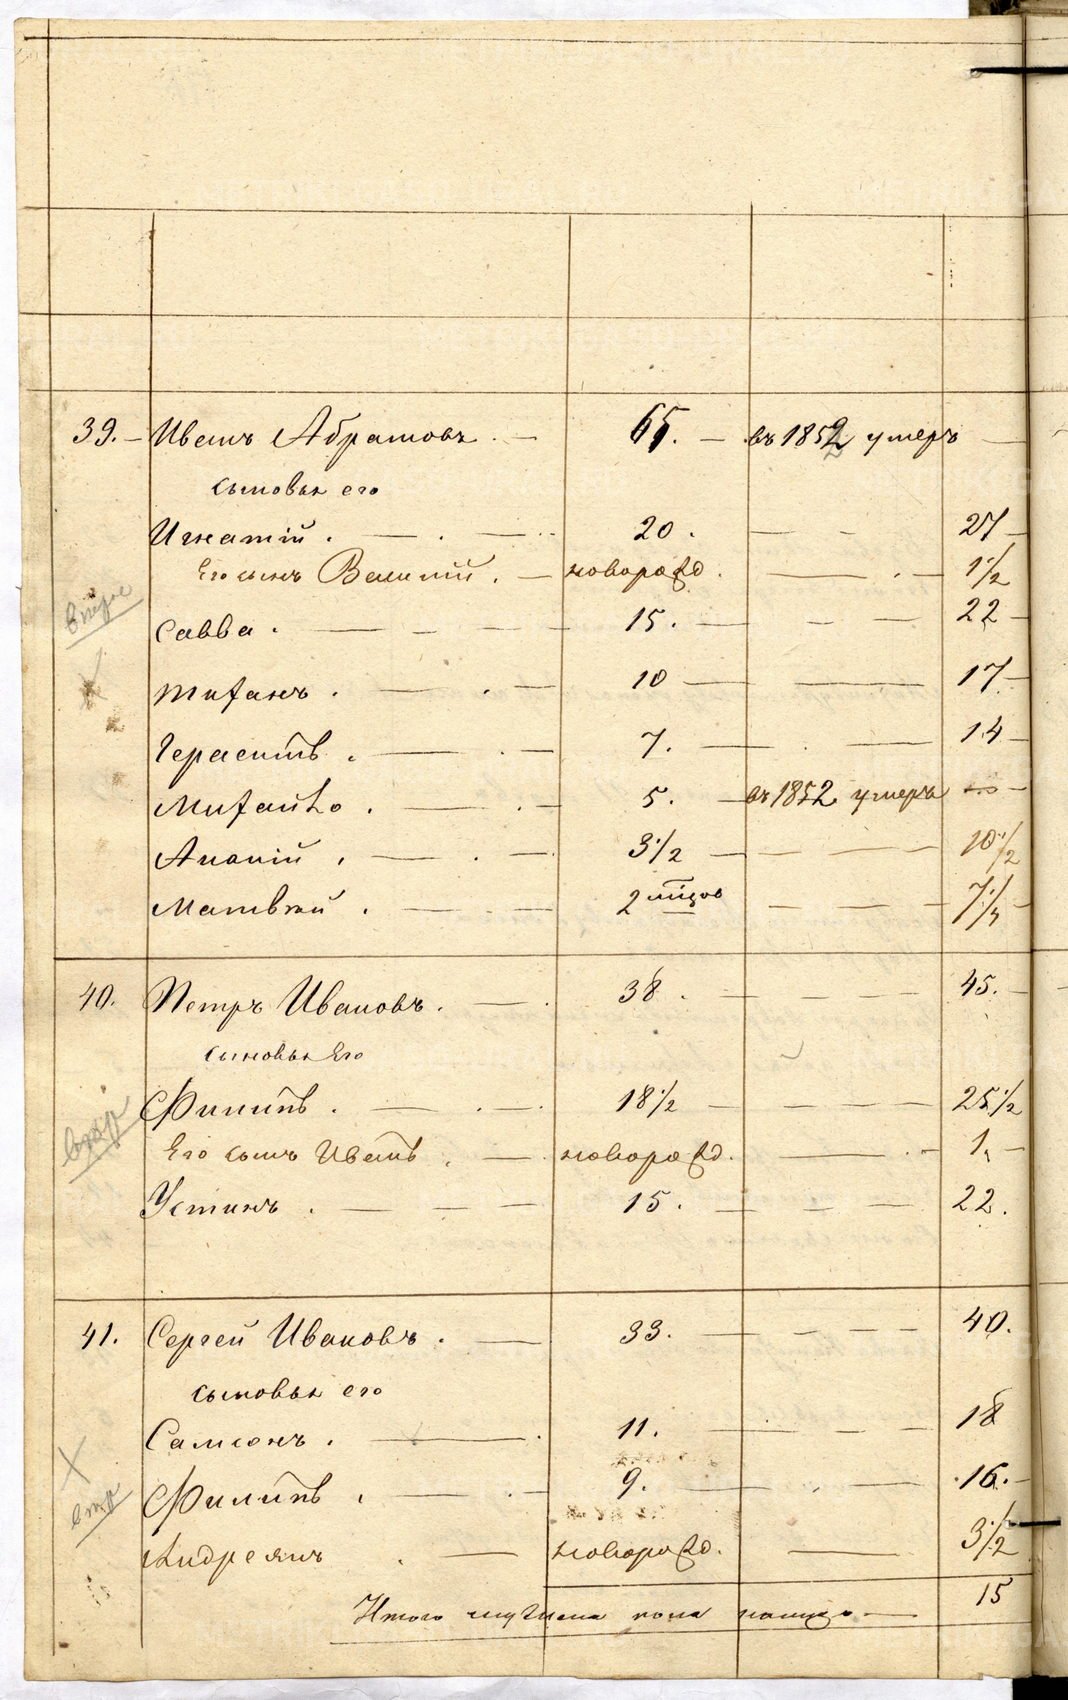 39. Иванъ Абрамовъ. 65. въ 1852 умеръ
сыновья его
Игнатій. 20. 27
Его сынъ Василій. новорожд. 1 1/2
Савва. 15. 22
Тифанъ. 10 17
Герасимъ. 7. 14
Михайло. 5. въ 1852 умеръ
Ананій. 3 1/2 10 1/2
Матвѣй. 2 мѣсяцовъ 7 1/4
40. Петръ Ивановъ. 38. 45.
сыновья Его
Филипъ. 18 1/2 25 1/2
Его сынъ Иванъ. новорожд. 1.
Устинъ. 15. 22.
41. Сергей Ивановъ. 33. 40.
сыновья его
Самсонъ. 11. 18
Филипъ. 9. 16.
Андреянъ. новорожд. 3 1/2
Итого мужеска пола налицо 15